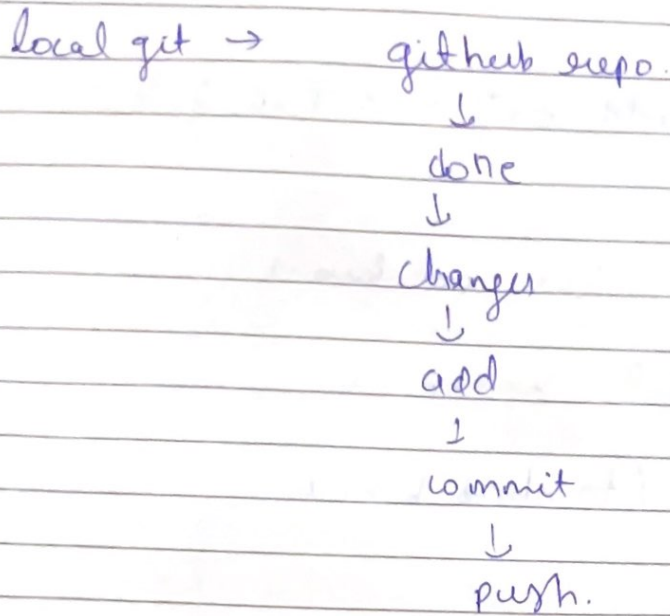 local git → github repo.
↓
clone
↓
changes
↓
add
↓
commit
↓
push.